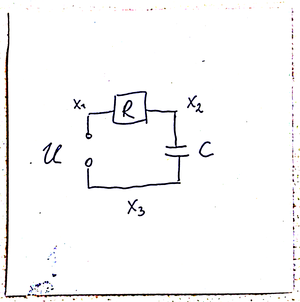 X₁ R X₂
U C
X₃